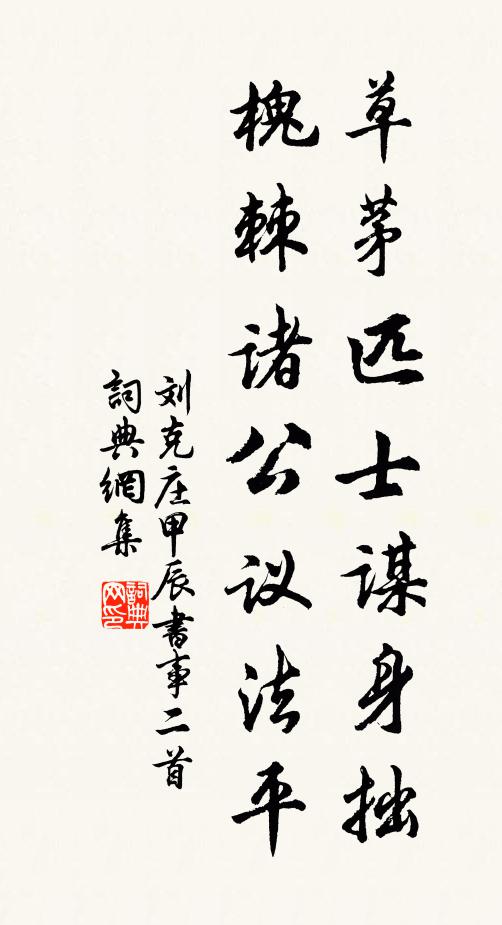 草茅匹士谋身拙
槐棘诸公议法平
刘克庄甲辰書事二首
詞典網集
詞典
网印